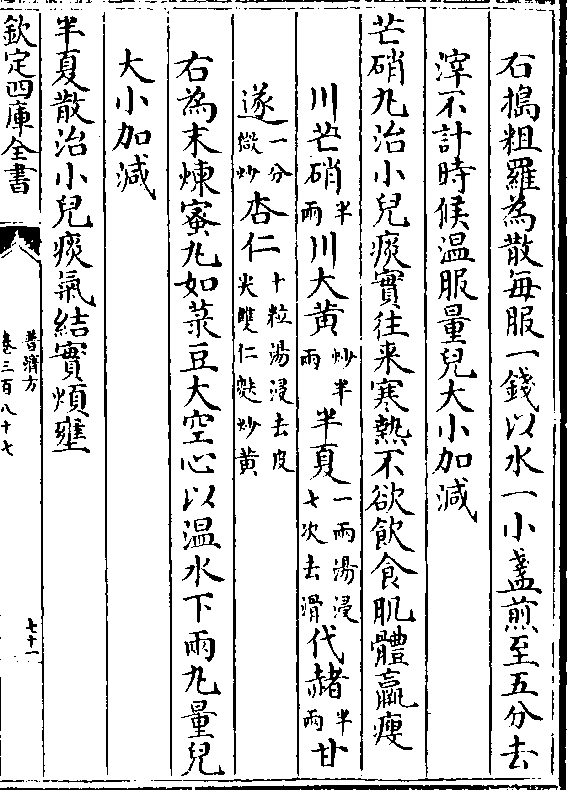 右搗粗羅為散每服一錢以水一小盞煎至五分去
滓不計時候温服量兒大小加減
芒硝丸治小兒痰實往来寒熱不欲飲食肌體羸瘦
川芒硝半兩川大黄炒半兩半夏一兩湯浸七次去滑代赭半兩甘
遂一分微炒杏仁十粒湯浸去皮尖雙仁麩炒黄
右為末煉蜜丸如菉豆大空心以温水下兩丸量兒
大小加減
半夏散治小兒痰氣結實煩壅
欽定四庫全書
普濟方
卷三百八十七
七十一